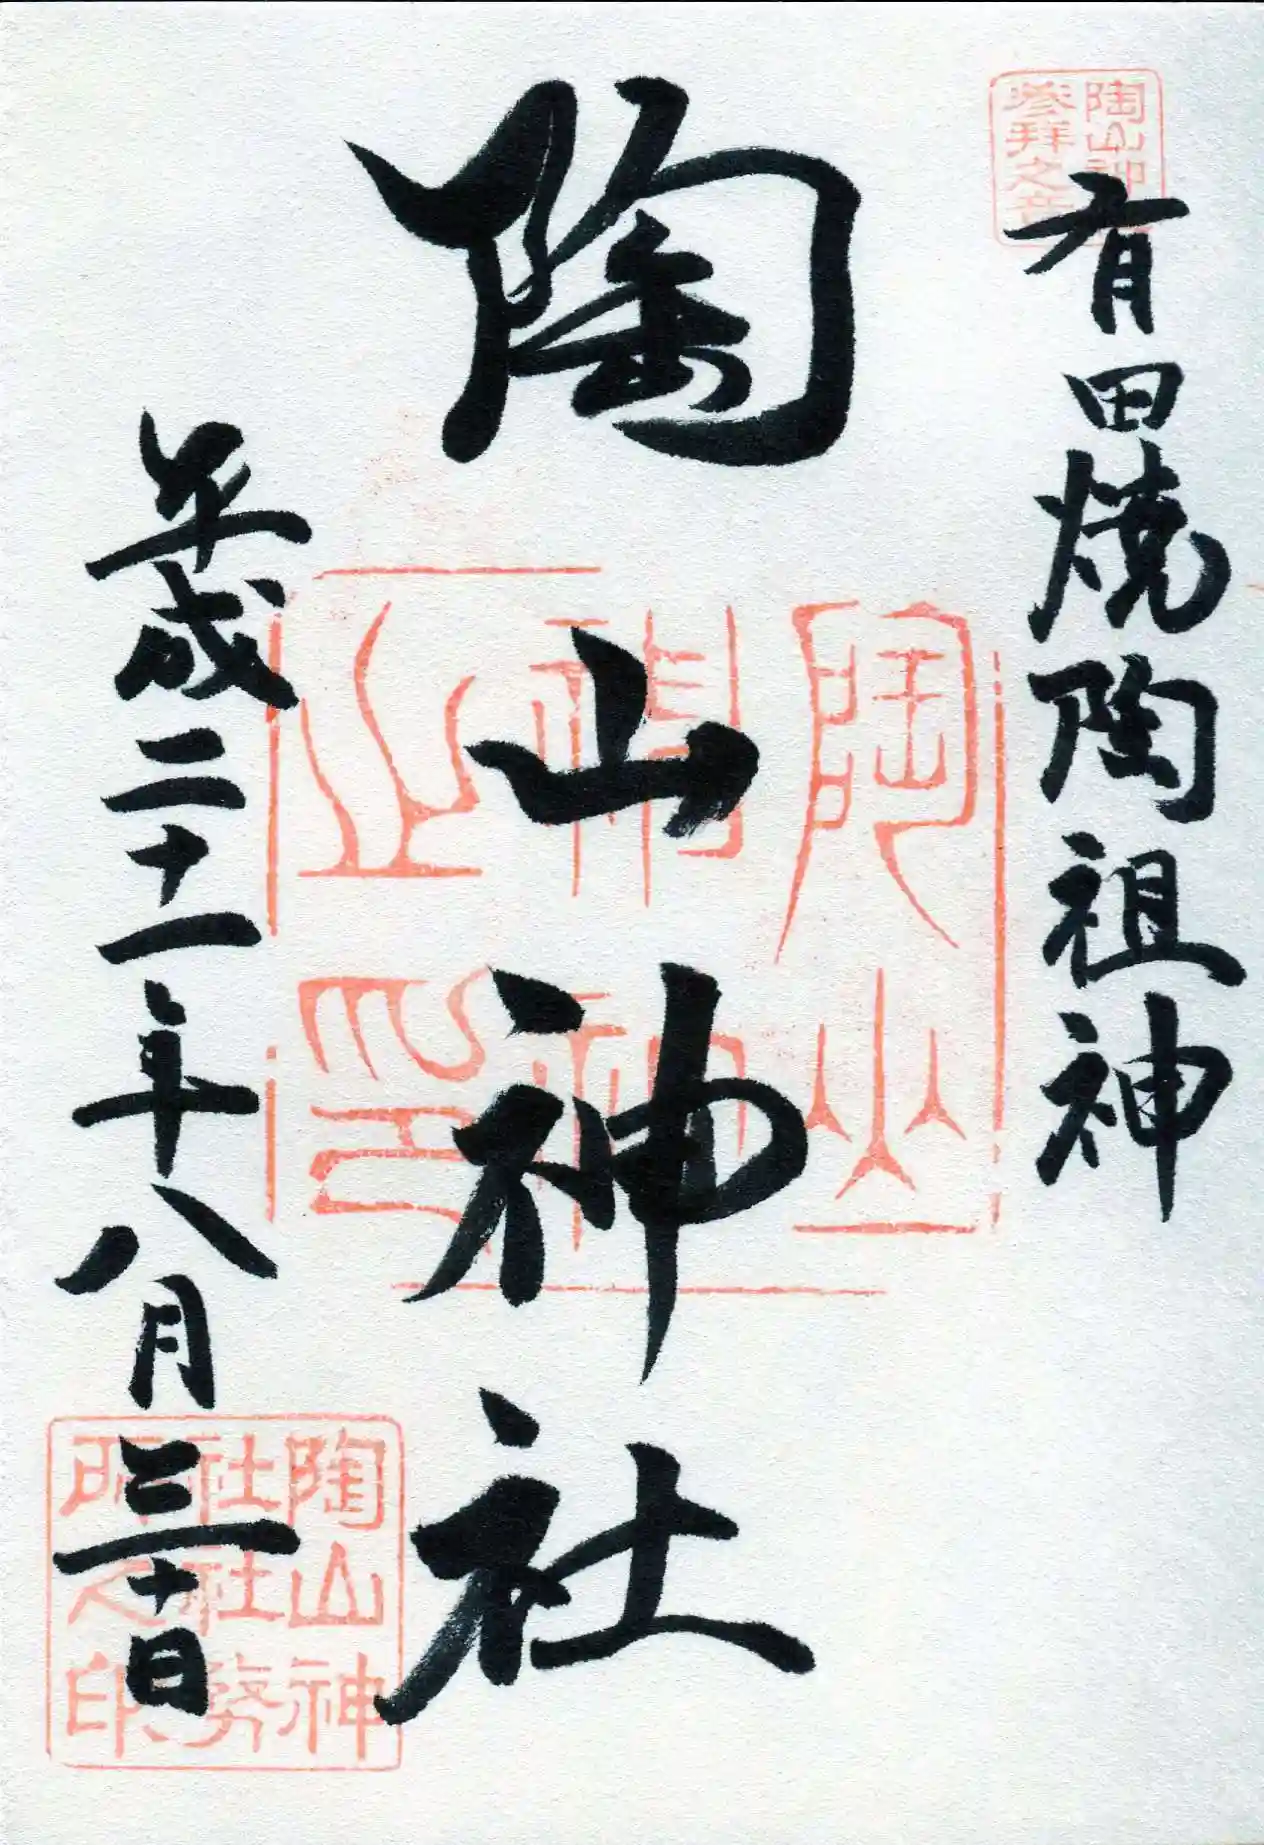 陶山神
參拜之
有田焼陶祖神
陶山神社
陶山
之印
平成二十一年八月三十日
陶山神
社社務
所之印